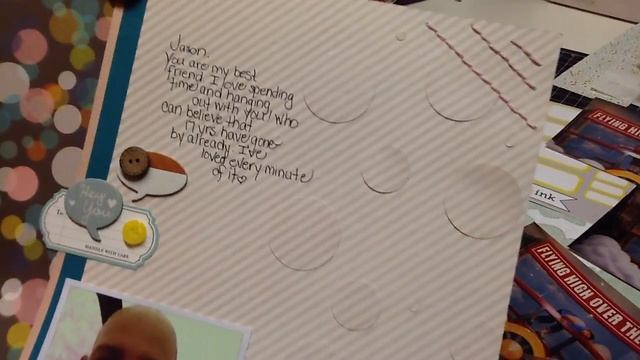 Jason,
You are my best
friend I love spending
time and hanging
out with you! who
can believe that
17 yrs have gone
by already. I've
loved every minute
of it
Hey
You
To
HANDLE WITH CARE
FLYING HIGH
ink
FLYING HIGH OVER TH